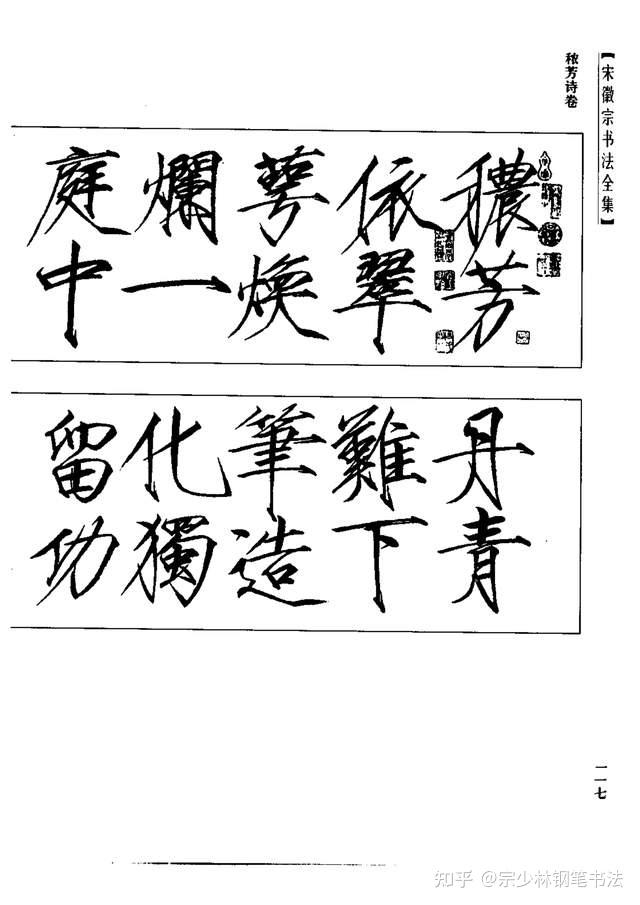 【宋徽宗书法全集】
秾芳诗卷
穠芳
依翠
萼煥
爛一
庭中
丹青
難下
筆造
化獨
留功
一一七
知乎 @宗少林钢笔书法